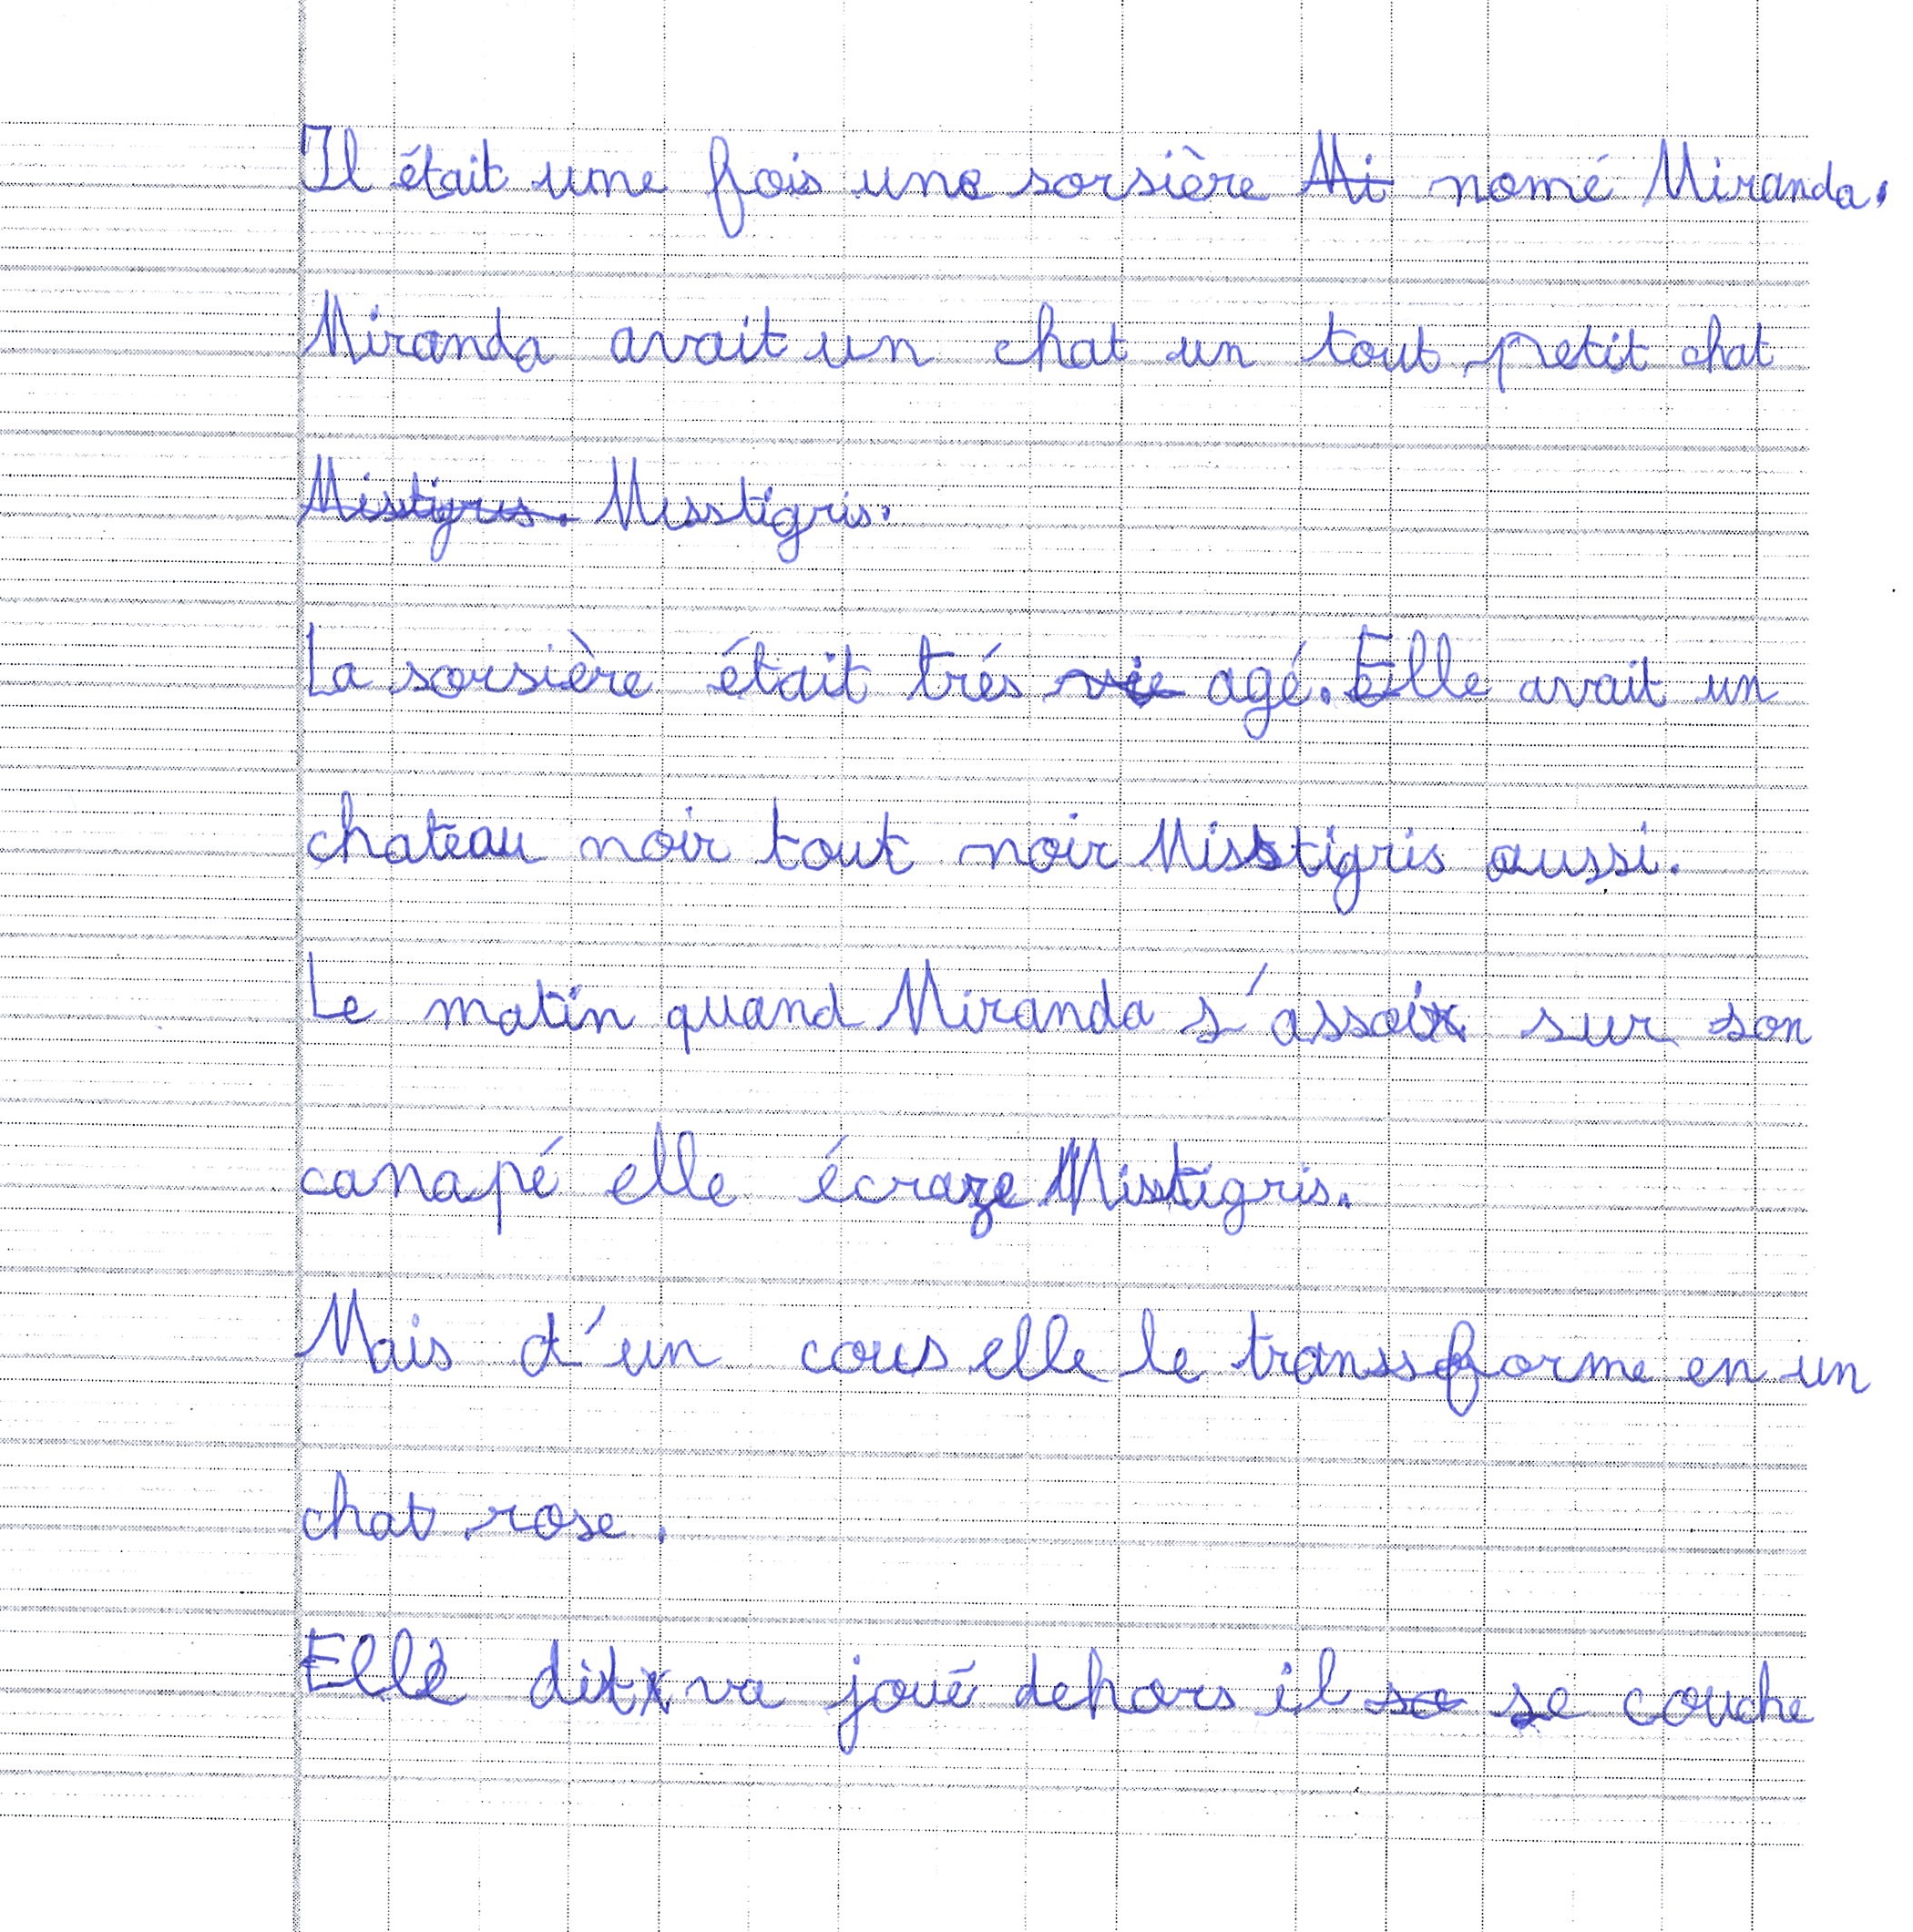 Il était une fois une sorsière Mi nomé Miranda.
Miranda avait un chat un tout petit chat
Misstigris. Misstigris.
La sorsière était trés vie agé. Elle avait un
chateau noir tout noir Misstigris aussi.
Le matin quand Miranda s'assoix sur son
canapé elle écraze Misstigris.
Mais d'un cous elle le transsforme en un
chat rose.
Elle dit va joué dehors il se se couche